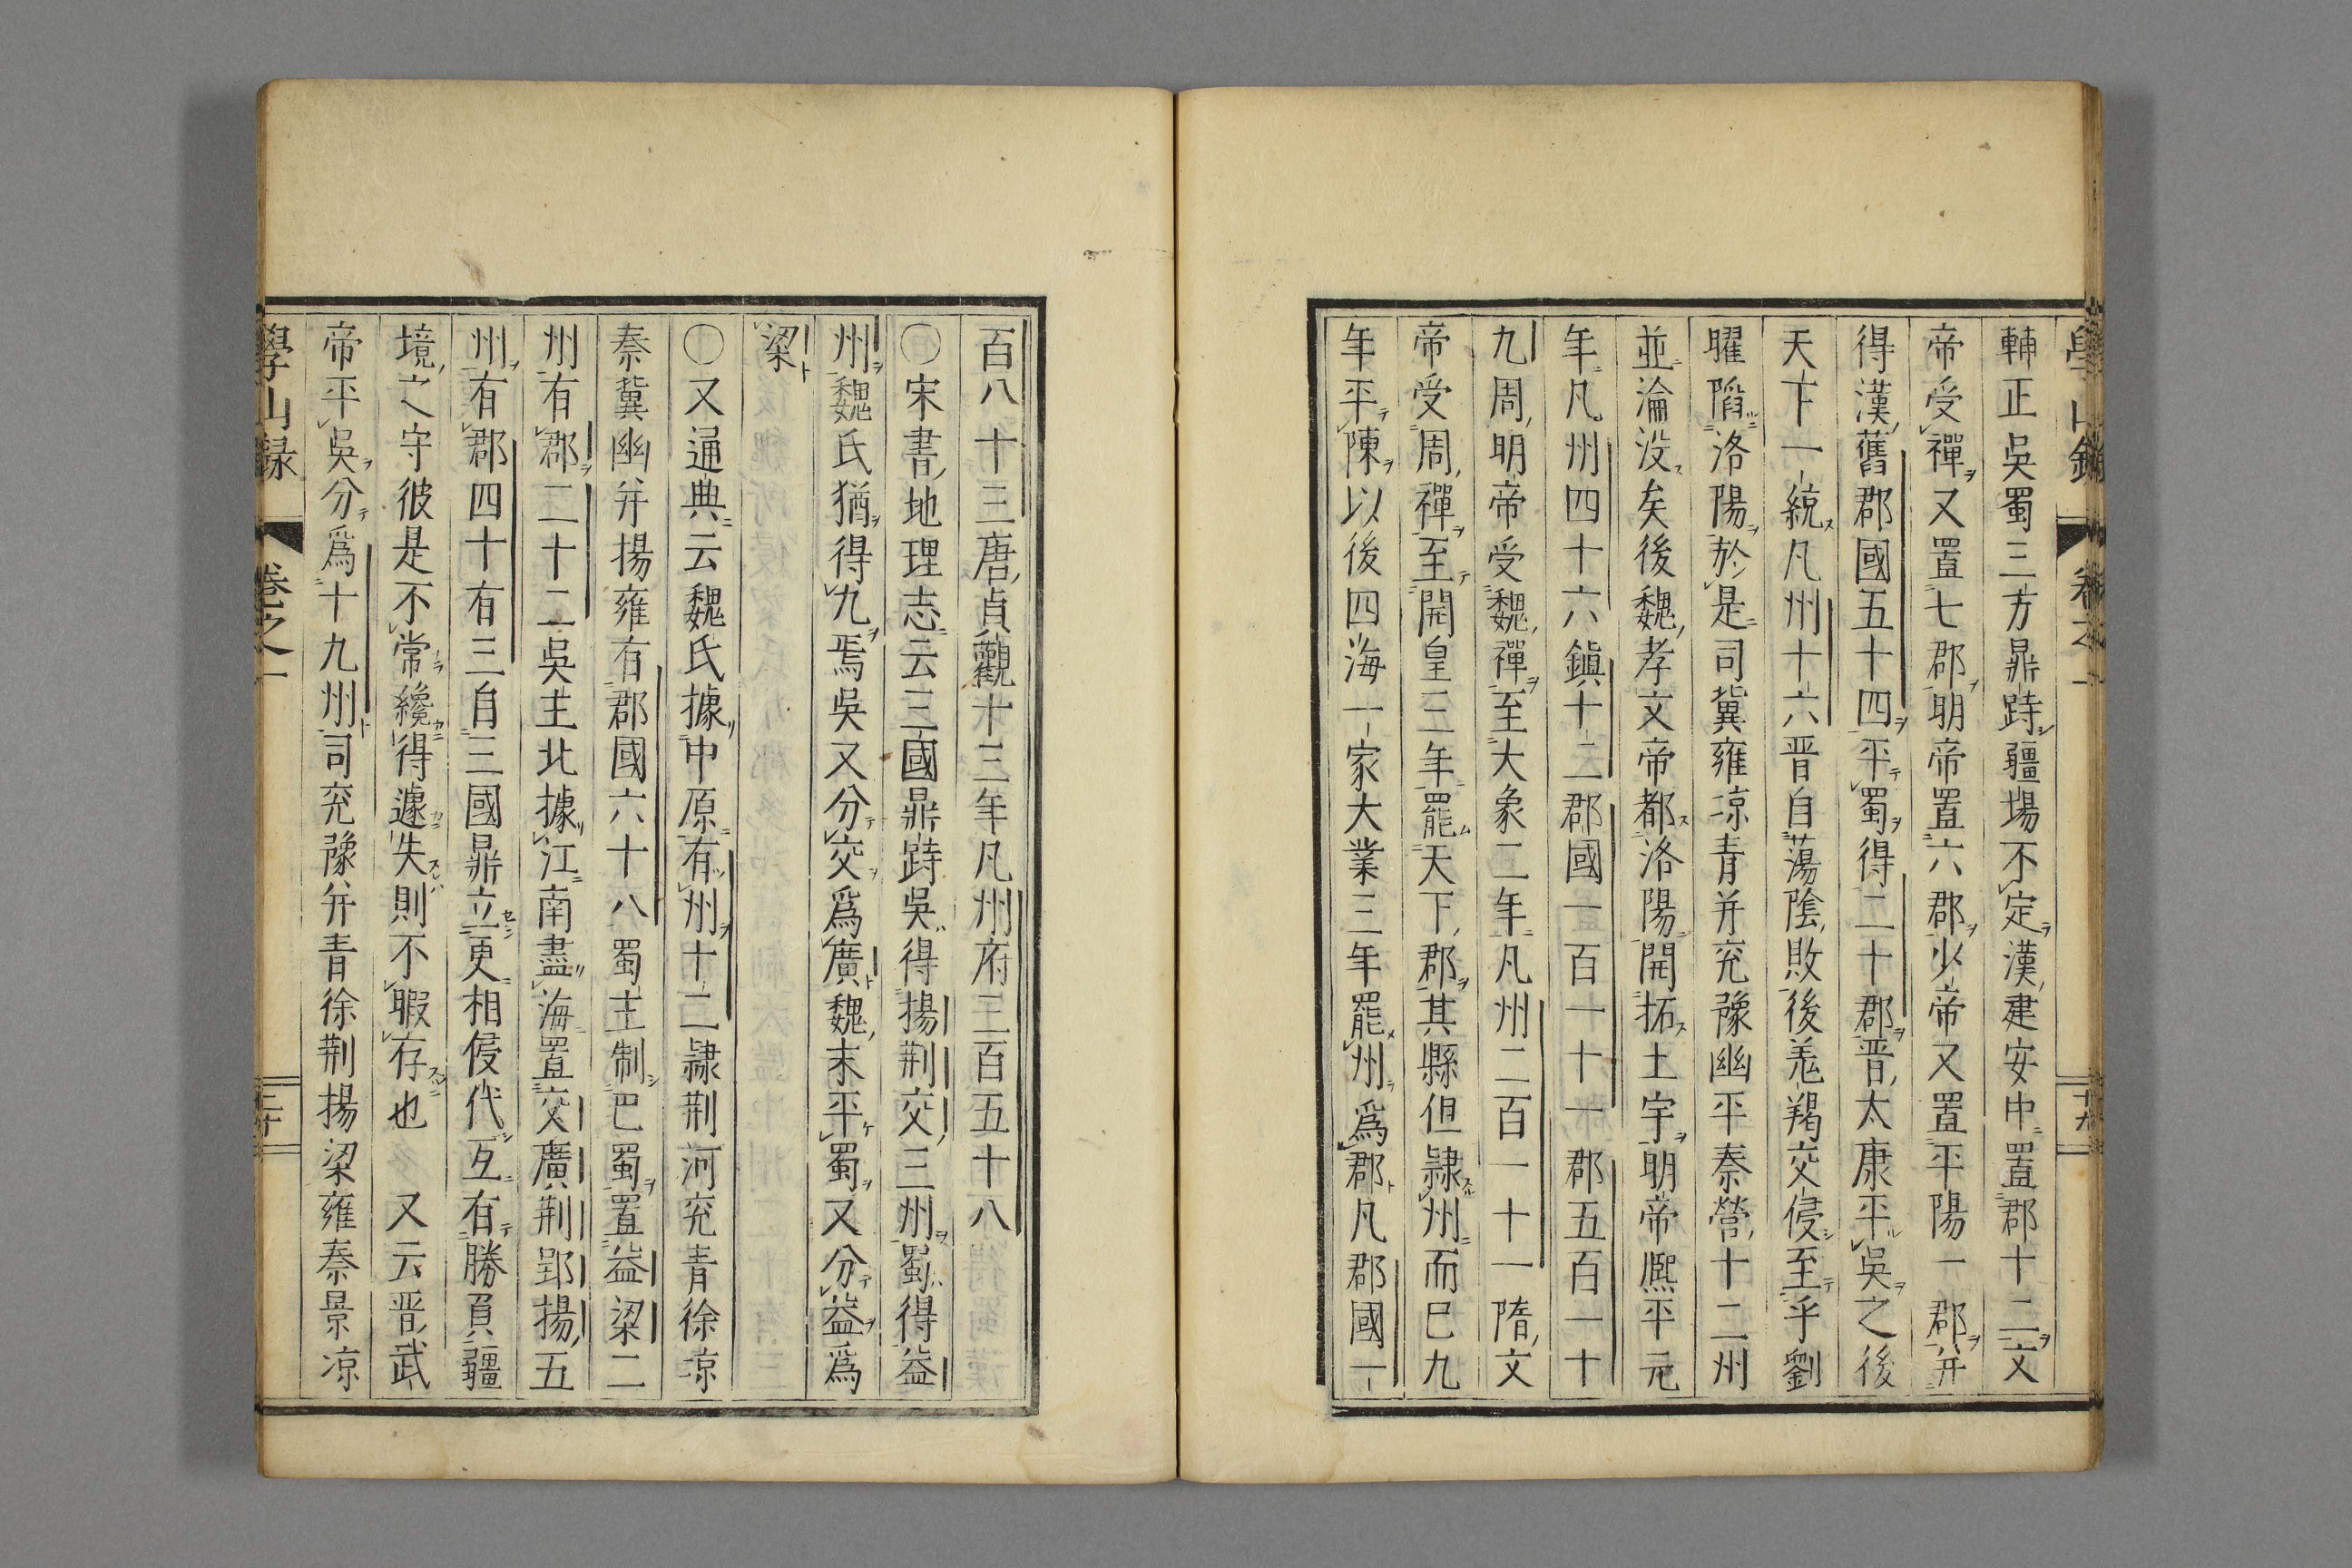 學山錄 卷之一 二十九
輔正吳蜀三方鼎跱疆場不定漢建安中置郡十二文
帝受禪又置七郡明帝置六郡少帝又置平陽一郡并
得漢舊郡國五十四平蜀得二十郡晋太康平吳之後
天下一統凡州十六晋自蕩陰敗後羗羯交侵至乎劉
曜䧟洛陽於是司冀雍凉青并兖豫幽平秦營十二州
並淪没矣後魏孝文帝都洛陽開拓土宇明帝熈平元
年凡州四十六鎮十二郡國一百一十一郡五百一十
九周明帝受魏禪至大象二年凡州二百一十一隋文
帝受周禪至開皇三年罷天下郡其縣但隷州而已九
年平陳以後四海一家大業三年罷州爲郡凡郡國一
百八十三唐貞觀十三年凡州府三百五十八
〇宋書地理志云三國鼎跱吳得揚荆交三州蜀得益
州魏氏猶得九焉吳又分交爲廣魏末平蜀又分益爲
梁
〇又通典云魏氏據中原有州十二隷荆河兖青徐凉
秦冀幽并揚雍有郡國六十八蜀主制巴蜀置益梁二
州有郡二十二吳主北據江南盡海置交廣荆郢揚五
州有郡四十有三自三國鼎立更相侵代互有勝負疆
境之守彼是不常纔得遽失則不暇存也 又云晋武
帝平吳分爲十九州司兖豫并青徐荆揚梁雍秦景凉
學山録 卷之一 三十